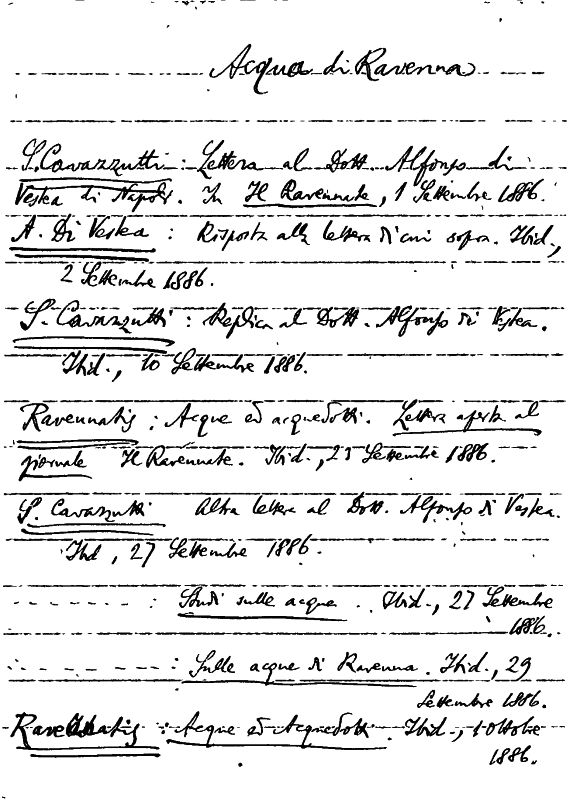 Acqua di Ravenna
S. Cavazzutti : Lettera al Dott. Alfonso di
Vestea di Napoli. In Il Ravennate, 1 Settembre 1886.
A. Di Vestea : Risposta alla lettera di cui sopra. Ibid.,
2 Settembre 1886.
S. Cavazzutti : Replica al Dott. Alfonso di Vestea.
Ibid., 10 Settembre 1886.
Ravennatis : Acque ed acquedotti. Lettera aperta al
giornale Il Ravennate. Ibid., 23 Settembre 1886.
S. Cavazzutti Altra lettera al Dott. Alfonso di Vestea.
Ibid , 27 Settembre 1886.
- - - - - - - : Studi sulle acque . Ibid., 27 Settembre
1886.
- - - - - - - : Sulle acque di Ravenna . Ibid., 29
Settembre 1886.
Ravennatis : Acque ed Acquedotti . Ibid., 1 Ottobre
1886.